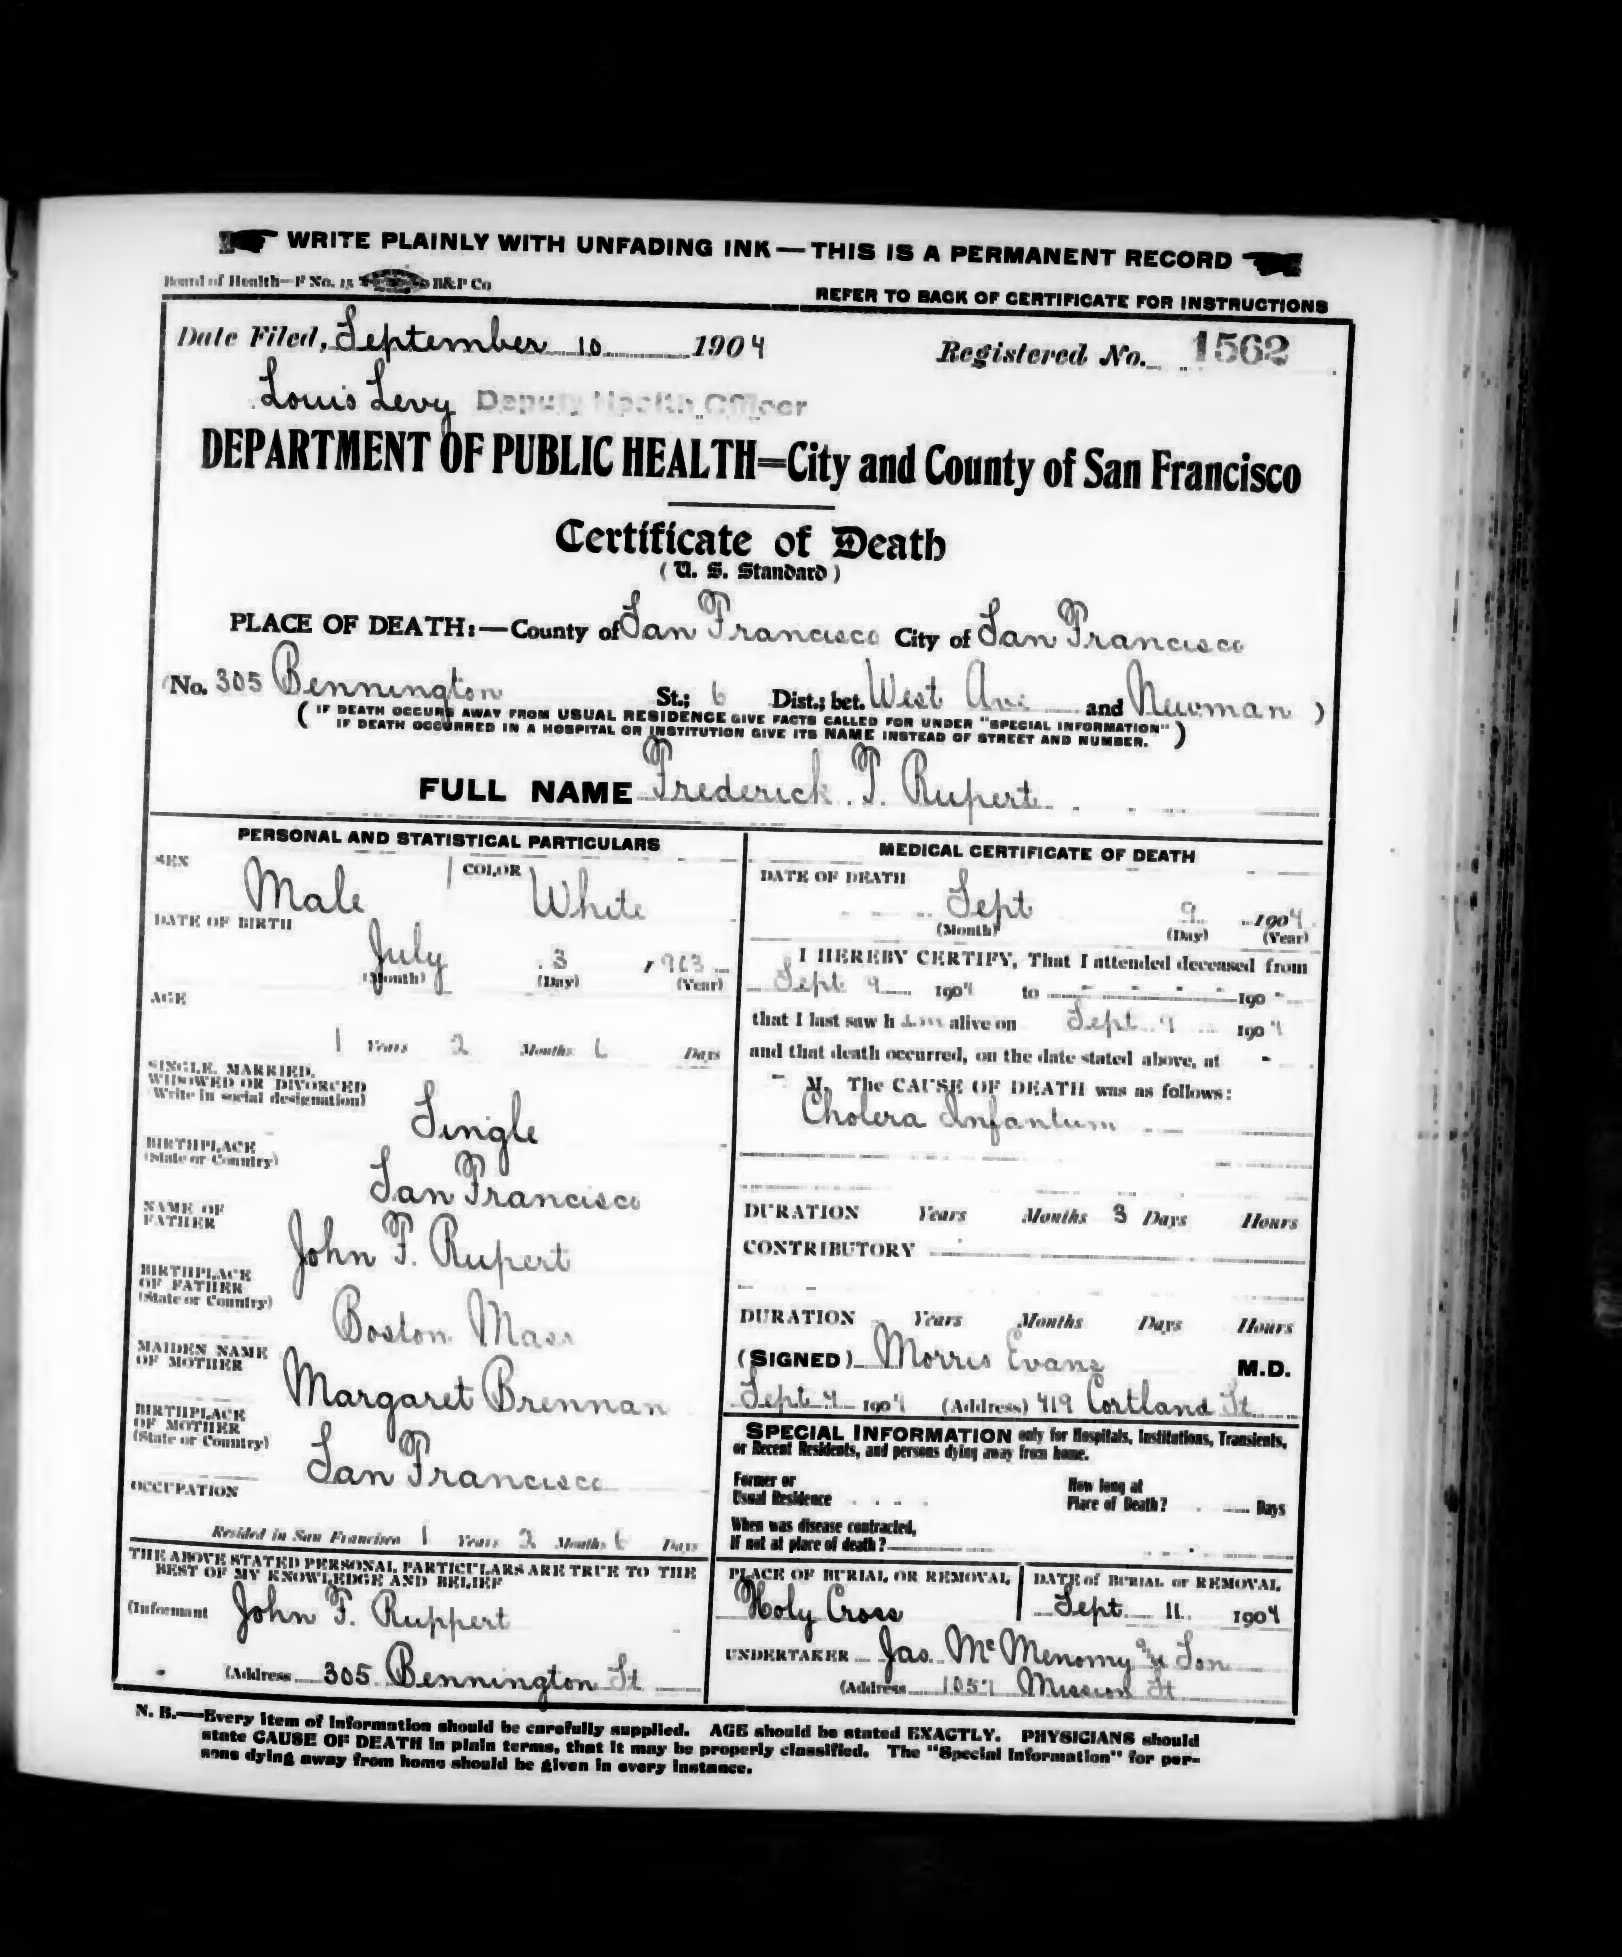 WRITE PLAINLY WITH UNFADING INK — THIS IS A PERMANENT RECORD
Board of Health—F No. 15 B&P Co
REFER TO BACK OF CERTIFICATE FOR INSTRUCTIONS
Date Filed, September 10 1904 Registered No. 1562
Louis Levy Deputy Health Officer
DEPARTMENT OF PUBLIC HEALTH=City and County of San Francisco
Certificate of Death
( U. S. Standard )
PLACE OF DEATH:—County of San Francisco City of San Francisco
No. 305 Bennington St.; 6 Dist.; bet. West Ave and Newman )
( IF DEATH OCCURS AWAY FROM USUAL RESIDENCE GIVE FACTS CALLED FOR UNDER "SPECIAL INFORMATION"
IF DEATH OCCURRED IN A HOSPITAL OR INSTITUTION GIVE ITS NAME INSTEAD OF STREET AND NUMBER. )
FULL NAME Frederick T. Rupert
PERSONAL AND STATISTICAL PARTICULARS
SEX Male COLOR White
DATE OF BIRTH
July 3 1903
(Month) (Day) (Year)
AGE
1 Years 2 Months 6 Days
SINGLE, MARRIED,
WIDOWED OR DIVORCED
(Write in social designation)
Single
BIRTHPLACE
(State or Country)
San Francisco
NAME OF
FATHER
John F. Rupert
BIRTHPLACE
OF FATHER
(State or Country)
Boston Mass
MAIDEN NAME
OF MOTHER
Margaret Brennan
BIRTHPLACE
OF MOTHER
(State or Country)
San Francisco
OCCUPATION
Resided in San Francisco 1 Years 2 Months 6 Days
THE ABOVE STATED PERSONAL PARTICULARS ARE TRUE TO THE
BEST OF MY KNOWLEDGE AND BELIEF
(Informant John F. Ruppert
(Address 305 Bennington St
MEDICAL CERTIFICATE OF DEATH
DATE OF DEATH
Sept 9 1904
(Month) (Day) (Year)
I HEREBY CERTIFY, That I attended deceased from
Sept 9 1904 to 190
that I last saw h im alive on Sept 9 1904
and that death occurred, on the date stated above, at
M. The CAUSE OF DEATH was as follows:
Cholera Infantum
DURATION Years Months 3 Days Hours
CONTRIBUTORY
DURATION Years Months Days Hours
(SIGNED) Morris Evans M.D.
Sept 9 1904 (Address) 419 Cortland St
SPECIAL INFORMATION only for Hospitals, Institutions, Transients,
or Recent Residents, and persons dying away from home.
Former or
Usual Residence
How long at
Place of Death? Days
When was disease contracted,
If not at place of death?
PLACE OF BURIAL OR REMOVAL
Holy Cross
DATE of BURIAL or REMOVAL
Sept 11 1904
UNDERTAKER Jas. McMenomy & Son
(Address 1057 Mission St
N. B.—Every item of information should be carefully supplied. AGE should be stated EXACTLY. PHYSICIANS should
state CAUSE OF DEATH in plain terms, that it may be properly classified. The "Special Information" for per-
sons dying away from home should be given in every instance.